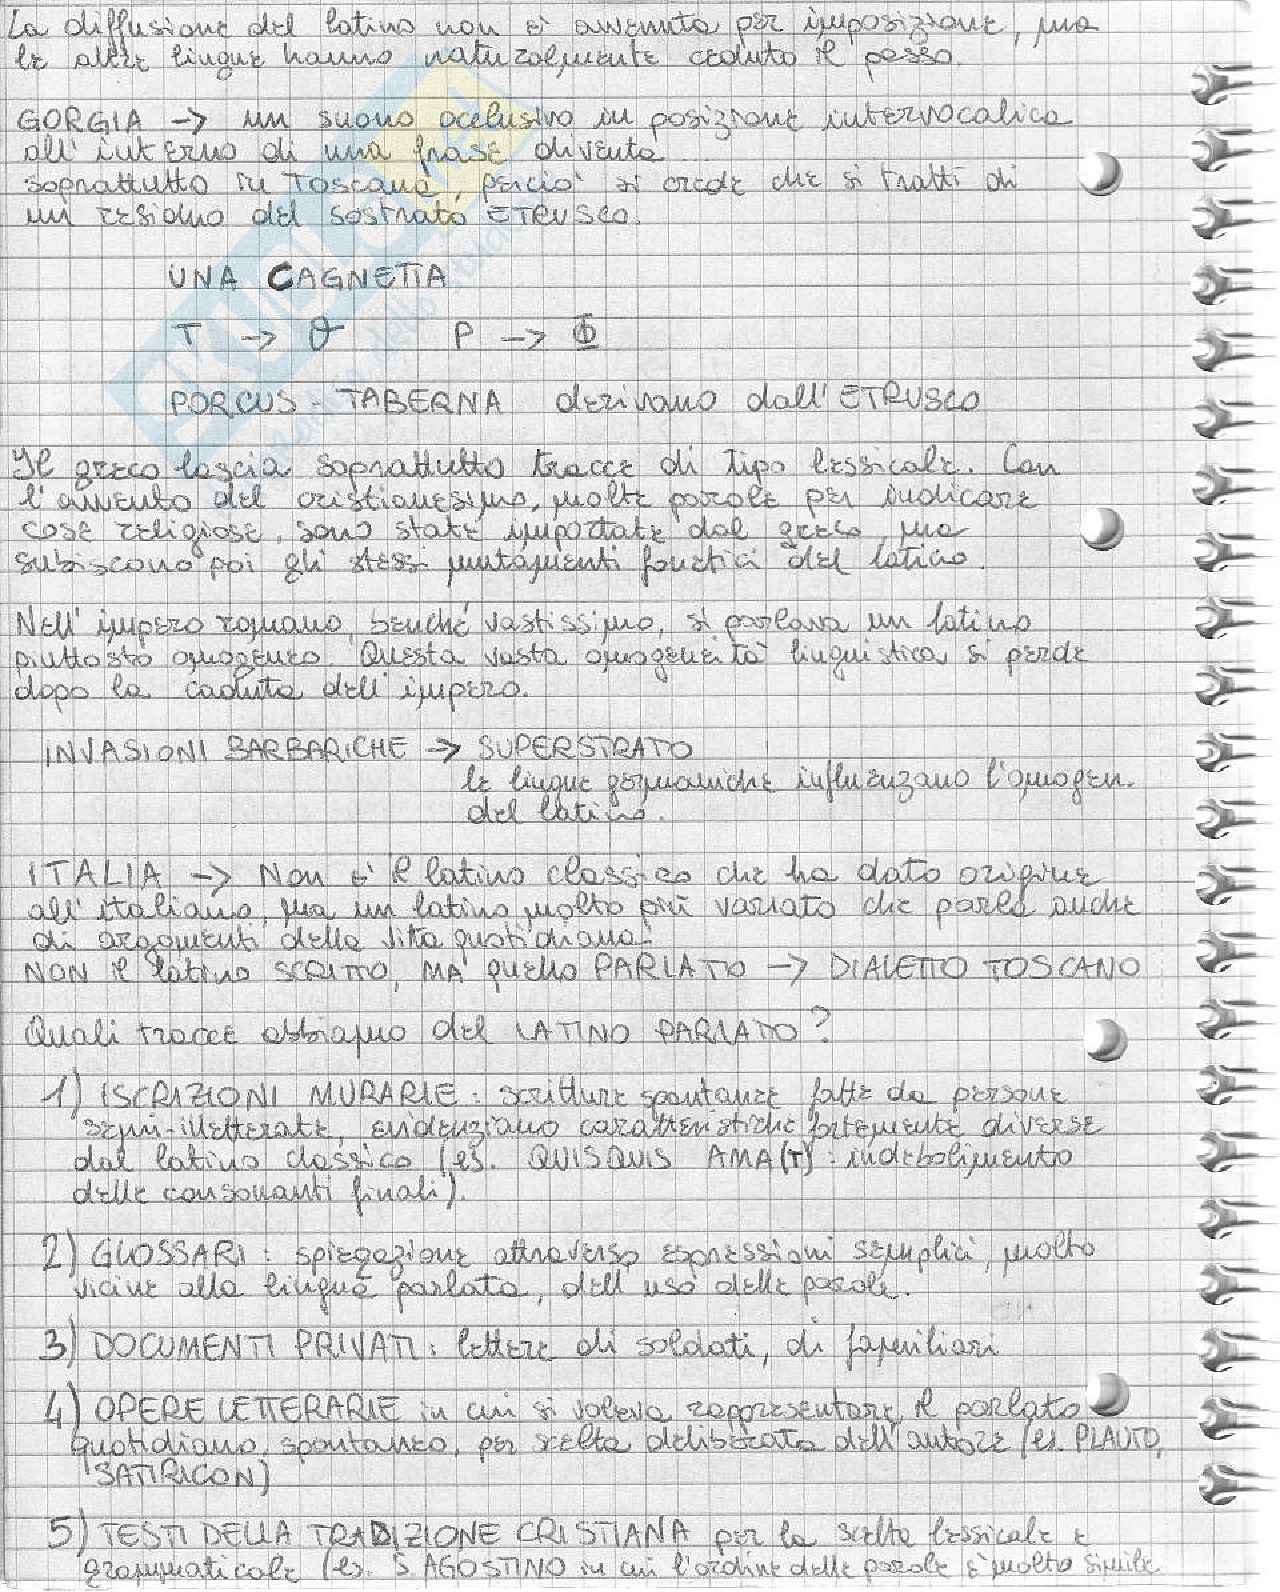 La diffusione del latino non è avvenuta per imposizione, ma
le altre lingue hanno naturalmente ceduto il passo.
GORGIA -> un suono occlusivo in posizione intervocalica
all'interno di una frase diventa
soprattutto in Toscana, perciò si crede che si tratti di
un residuo del sostrato ETRUSCO.
UNA CAGNETTA
T -> θ P -> Φ
PORCUS - TABERNA derivano dall'ETRUSCO
Il greco lascia soprattutto tracce di tipo lessicale. Con
l'avvento del cristianesimo, molte parole per indicare
cose religiose, sono state importate dal greco, ma
subiscono poi gli stessi mutamenti fonetici del latino.
Nell'impero romano, benché vastissimo, si parlava un latino
piuttosto omogeneo. Questa vasta omogeneità linguistica si perde
dopo la caduta dell'impero.
INVASIONI BARBARICHE -> SUPERSTRATO
le lingue germaniche influenzano l'omogen.
del latino.
ITALIA -> Non è il latino classico che ha dato origine
all'italiano, ma un latino molto più variato che parla anche
di argomenti della vita quotidiana.
NON il latino SCRITTO, MA quello PARLATO -> DIALETTO TOSCANO
Quali tracce abbiamo del LATINO PARLATO?
1) ISCRIZIONI MURARIE: scritture spontanee fatte da persone
semi-illetterate, evidenziano caratteristiche fortemente diverse
dal latino classico (es. QUISQUIS AMA(T): indebolimento
delle consonanti finali).
2) GLOSSARI: spiegazione attraverso espressioni semplici, molto
vicine alla lingua parlata, dell'uso delle parole.
3) DOCUMENTI PRIVATI: lettere di soldati, di famigliari
4) OPERE LETTERARIE in cui si voleva rappresentare il parlato
quotidiano, spontaneo, per scelta deliberata dell'autore (es. PLAUTO,
SATIRICON)
5) TESTI DELLA TRADIZIONE CRISTIANA per la scelta lessicale e
grammaticale (es. S. AGOSTINO in cui l'ordine delle parole è molto simile